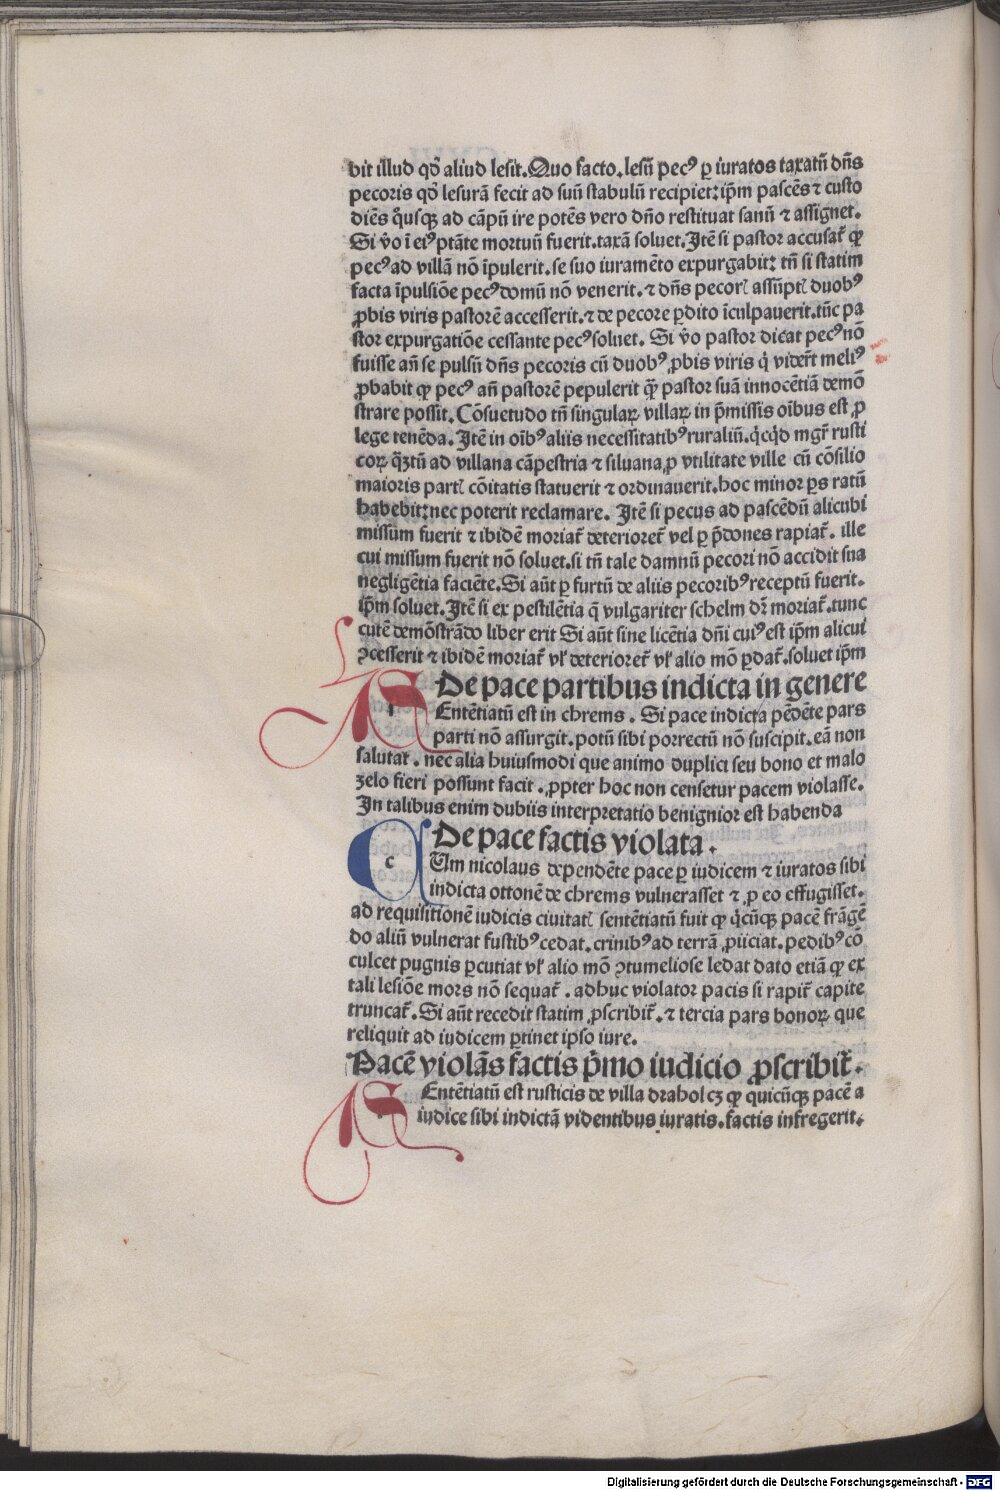 bit illud qđ aliud lesit. Quo facto. lesũ pecꝰ ꝑ iuratos taxatũ dñs
pecoris qđ lesurã fecit ad suũ stabulũ recipiet: ip̃m pascẽs ⁊ custo
diẽs q̃usqꝫ ad cãpũ ire potẽs vero dño restituat sanũ ⁊ assignet.
Si ṽo ĩ eiꝰ ptãte mortuũ fuerit. taxã soluet. Itẽ si pastor accusat̃ ꝙ
pecꝰ ad villã nõ ĩpulerit. se suo iuramẽto expurgabit: tñ si statim
facta ĩpulsiõe pecꝰ domũ nõ venerit. ⁊ dñs pecorꝭ assũptꝭ duobꝰ
ꝓbis viris pastorẽ accesserit. ⁊ de pecore ꝑdito ĩculpauerit. tũc pa
stor expurgatiõe cessante pecꝰ soluet. Si ṽo pastor dicat pecꝰ nõ
fuisse añ se pulsũ dñs pecoris cũ duobꝰ ꝓbis viris q̇ viderẽt meliꝰ
ꝓbabit ꝙ pecꝰ añ pastorẽ pepulerit q̃ꝫ pastor suã innocẽtiã demõ
strare possit. Cõsuetudo tñ singulaꝝ villaꝝ in p̃missis oĩbus est ꝓ
lege tenẽda. Itẽ in oĩbꝰ aliis necessitatibꝰ ruraliũ. q̇cq̇d mgr̃ rusti
coꝝ q̃ꝫtũ ad villana cãpestria ⁊ siluana ꝓ vtilitate ville cũ cõsilio
maioris partꝭ cõitatis statuerit ⁊ ordinauerit. hoc minor ꝑs ratũ
habebit: nec poterit reclamare. Itẽ si pecus ad pascẽdũ alicubi
missum fuerit ⁊ ibidẽ moriat̃ deterioret̃ vel ꝑ p̃dones rapiat̃. ille
cui missum fuerit nõ soluet. si tñ tale damnũ pecori nõ accidit sua
negligẽtia faciẽte. Si aũt ꝑ furtũ de aliis pecoribꝰ receptũ fuerit.
ip̃m soluet. Itẽ si ex pestilẽtia q̃ vulgariter schelm dr̃ moriat̃. tunc
cutẽ demõstrãdo liber erit Si aũt sine licẽtia dñi cuiꝰ est ip̃m alicui
ꝯcesserit ⁊ ibidẽ moriat̃ vꝉ deterioret̃ vꝉ alio mõ ꝑdat̃. soluet ip̃m
De pace partibus indicta in genere
Entẽtiatũ est in chrems. Si pace indicta pẽdẽte pars
parti nõ assurgit. potũ sibi porrectũ nõ suscipit. eã non
salutat̃. nec alia huiusmodi que animo duplici seu bono et malo
zelo fieri possunt facit. ꝓpter hoc non censetur pacem violasse.
In talibus enim dubiis interpretatio benignior est habenda
De pace factis violata.
c
Um nicolaus dependẽte pace ꝑ iudicem ⁊ iuratos sibi
indicta ottonẽ de chrems vulnerasset ⁊ ꝓ eo effugisset.
ad requisitionẽ iudicis ciuitatꝭ sentẽtiatũ fuit ꝙ q̇cũqꝫ pacẽ frãgẽ
do aliũ vulnerat fustibꝰ cedat. crinibꝰ ad terrã ꝓiiciat. pedibꝰ cõ
culcet pugnis ꝑcutiat vꝉ alio mõ ꝯtumeliose ledat dato etiã ꝙ ex
tali lesiõe mors nõ sequat̃. adhuc violator pacis si rapit̃ capite
truncat̃. Si aũt recedit statim ꝓscribit̃. ⁊ tercia pars bonoꝝ que
reliquit ad iudicem ꝑtinet ipso iure.
Pacẽ violãs factis p̃mo iudicio ꝓscribit̃.
Entẽtiatũ est rusticis de villa draholcz ꝙ quicũqꝫ pacẽ a
iudice sibi indictã videntibus iuratis. factis infregerit.
Digitalisierung gefördert durch die Deutsche Forschungsgemeinschaft - DFG